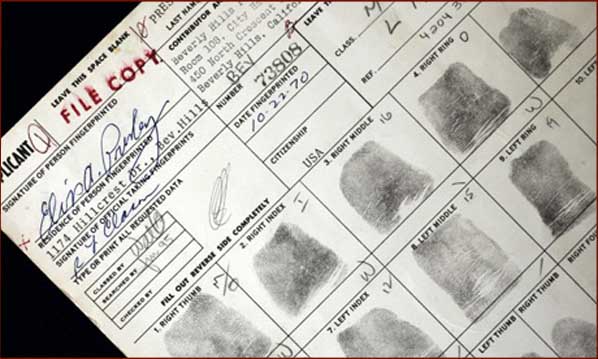 LEAVE THIS SPACE BLANK
PRES
FILE COPY
LAST NAM
CONTRIBUTOR AN
Beverly Hills P
Room 108, City Ha
450 North Crescent
Beverly Hills, Califor
BEV
NUMBER 73808
LEAVE T
CLASS.
M
L
REF.
PLICANT
SIGNATURE OF PERSON FINGERPRINTED
Elvis A. Presley
RESIDENCE OF PERSON FINGERPRINTED
1174 Hillcrest Dr., Bev.Hills
SIGNATURE OF OFFICIAL TAKING FINGERPRINTS
TYPE OR PRINT ALL REQUESTED DATA
DATE FINGERPRINTED
10-22-70
CITIZENSHIP
USA
CLASSED BY
SEARCHED BY
CHECKED BY
FILL OUT REVERSE SIDE COMPLETELY
1. RIGHT THUMB
2. RIGHT INDEX
I
3. RIGHT MIDDLE
16
4. RIGHT RING
O
W
7. LEFT INDEX
12
W
8. LEFT MIDDLE
15
9. LEFT RING
19
10. LEF
LEFT THUMB
RIGHT THUMB
RIGHT FOU